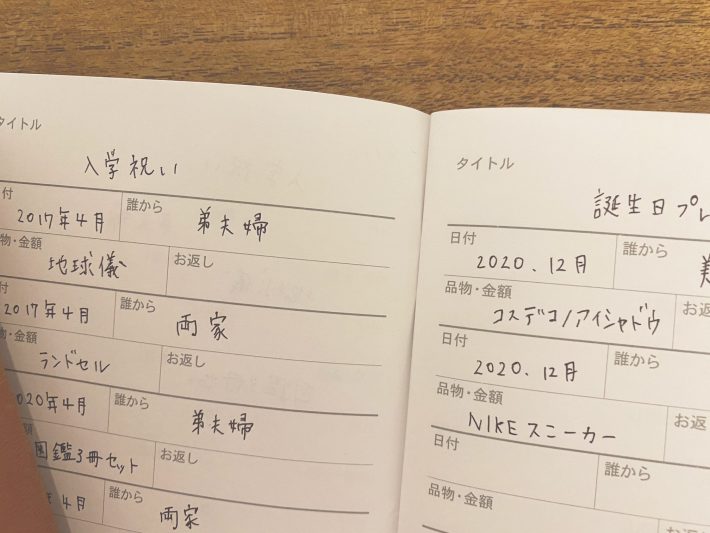 タイトル
入学祝い
付 2017年4月 誰から 弟夫婦
物・金額 地球儀 お返し
付 2017年4月 誰から 両家
ランドセル お返し
2020年4月 誰から 弟夫婦
鑑3冊セット お返し
4月 誰から 両家
タイトル
誕生日プレ
日付 2020.12月 誰から
品物・金額 コスデコ/アイシャドウ お返
日付 2020.12月 誰から
品物・金額 NIKEスニーカー お返
日付 誰から
品物・金額